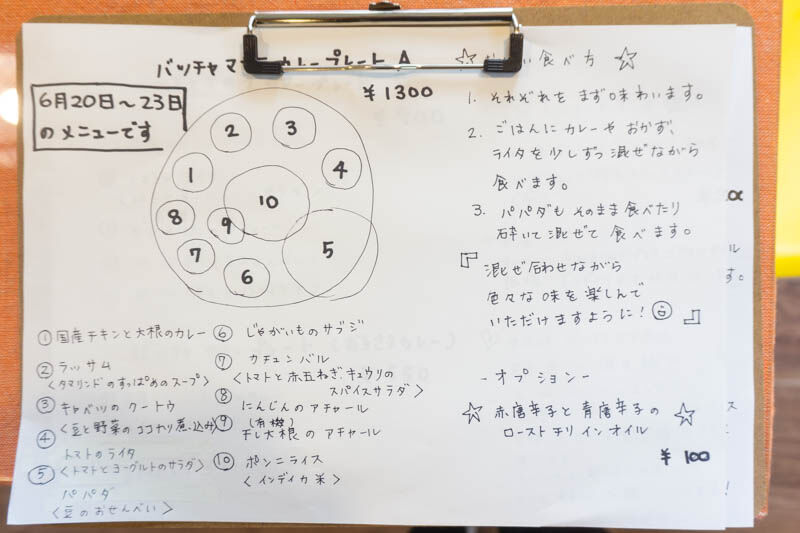 バッチャマ カレープレート A
¥1300
6月20日～23日
のメニューです
1
2
3
4
5
6
7
8
9
10
①国産チキンと大根のカレー
②ラッサム
＜タマリンドのすっぱめのスープ＞
③キャベツのクートゥ
＜豆と野菜のココナツ煮込み＞
④トマトのライタ
＜トマトとヨーグルトのサラダ＞
⑤パパダ
＜豆のおせんべい＞
⑥じゃがいものサブジ
⑦カチュンバル
＜トマトと赤玉ねぎ、キュウリの
スパイスサラダ＞
⑧にんじんのアチャール
⑨(有機)
干し大根のアチャール
⑩ポンニライス
＜インディカ米＞
☆ い食べ方 ☆
1. それぞれをまず味わいます。
2. ごはんにカレーやおかず、
ライタを少しずつ混ぜながら
食べます。
3. パパダもそのまま食べたり
砕いて混ぜて食べます。
「混ぜ合わせながら
色々な味を楽しんで
いただけますように！」
-オプション-
☆ 赤唐辛子と青唐辛子の ☆
ローストチリインオイル
¥100